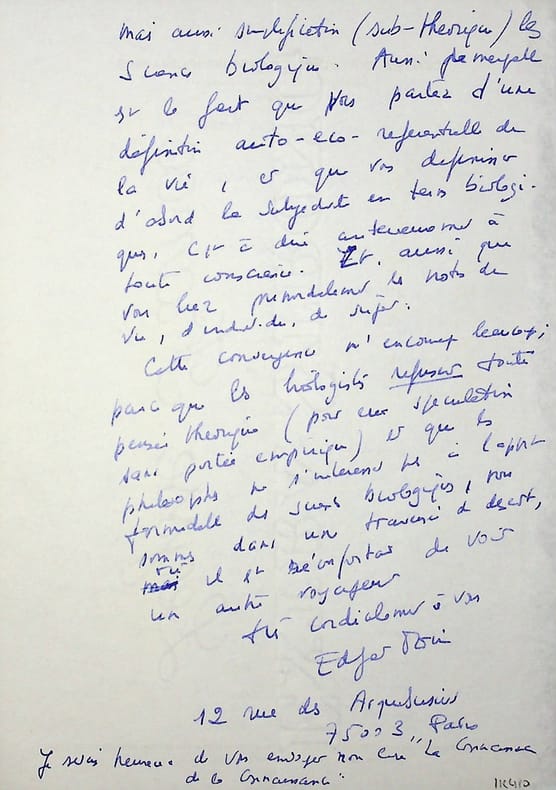 mais aussi simplification (sub-théorique) les
Sciences biologiques. Aussi remarquable
est le fait que vous partez d'une
définition auto-éco-référentielle de
la vie, et que vous définissez
d'abord la subjectivité en termes biologi-
ques, c'est à dire antérieurement à
toute conscience. Et, aussi que
vous liez primordialement les notions de
vie, d'individu, de sujet.
Cette convergence m'encourage beaucoup,
parce que les biologistes refusent toute
pensée théorique (pour eux spéculation
sans portée empirique) et que les
philosophes ne s'intéressent pas à l'apport
formidable des sciences biologiques, nous
sommes dans une traversée de désert,
où il est réconfortant de voir
un autre voyageur
très cordialement à vous
Edgar Morin
12 rue des Arquebusiers
75003, Paris
Je serais heureux de vous envoyer mon livre "La Connaissance
de la Connaissance"